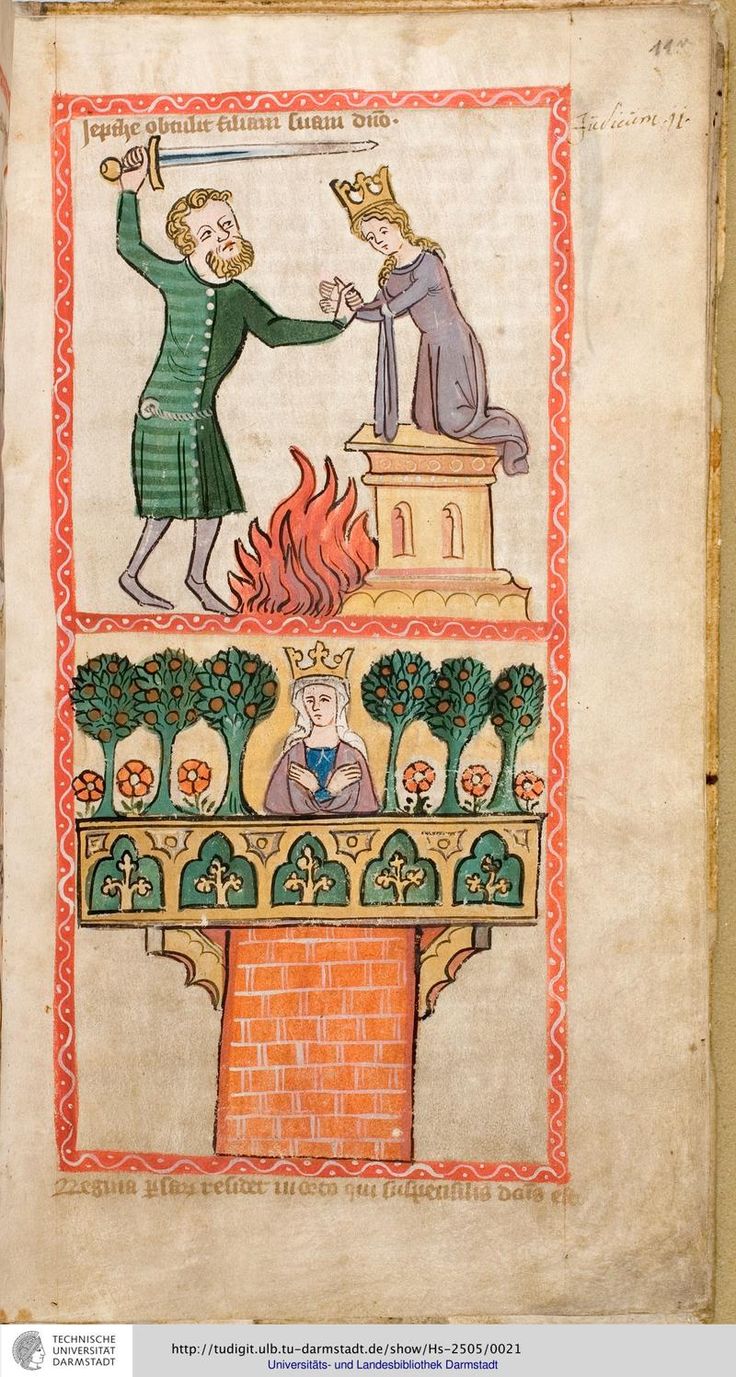 11v
Jepthe obtulit filiam suam dno·
Judicum ·ii·
Regina psaꝝ residet in orto qui suspensilis dcūs est
TECHNISCHE
UNIVERSITÄT
DARMSTADT
http://tudigit.ulb.tu-darmstadt.de/show/Hs-2505/0021
Universitäts- und Landesbibliothek Darmstadt